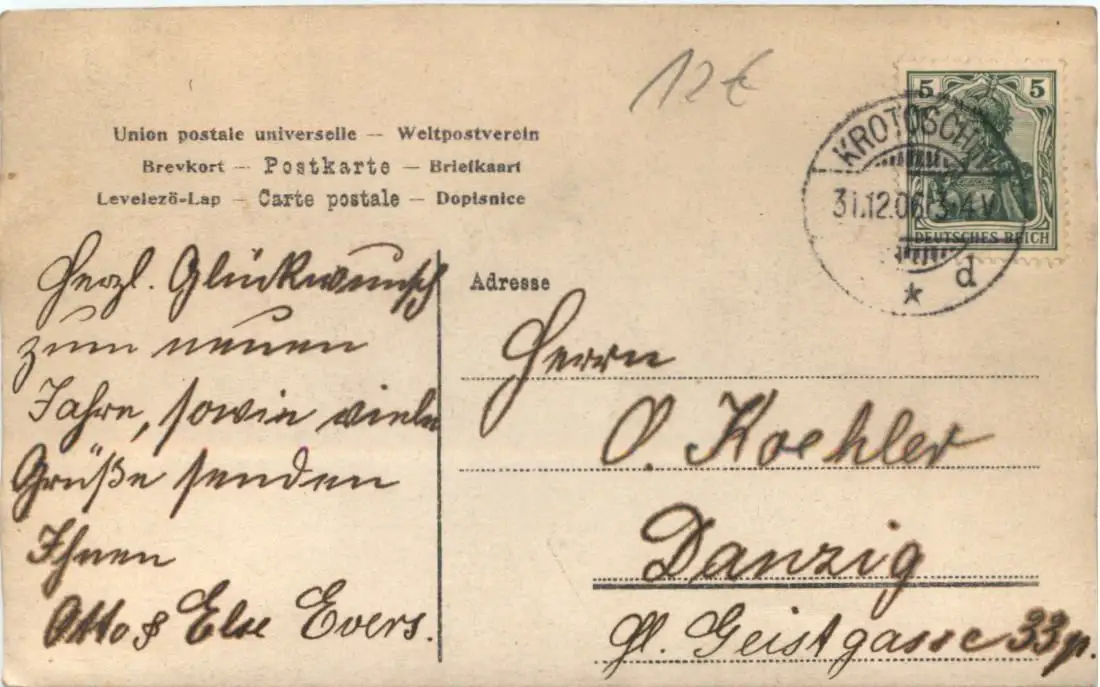 12 €
5 5
DEUTSCHES REICH
KROTOSCHIN
31.12.06 3-4 V
* d
Union postale universelle — Weltpostverein
Brevkort — Postkarte — Briefkaart
Levelező-Lap — Carte postale — Dopisnice
Herzl. Glückwunsch
zum neuen
Jahre, sowie viele
Grüße senden
Ihnen
Otto & Else Evers.
Adresse
Herrn
O. Koehler
Danzig
Hl. Geistgasse 33 p.